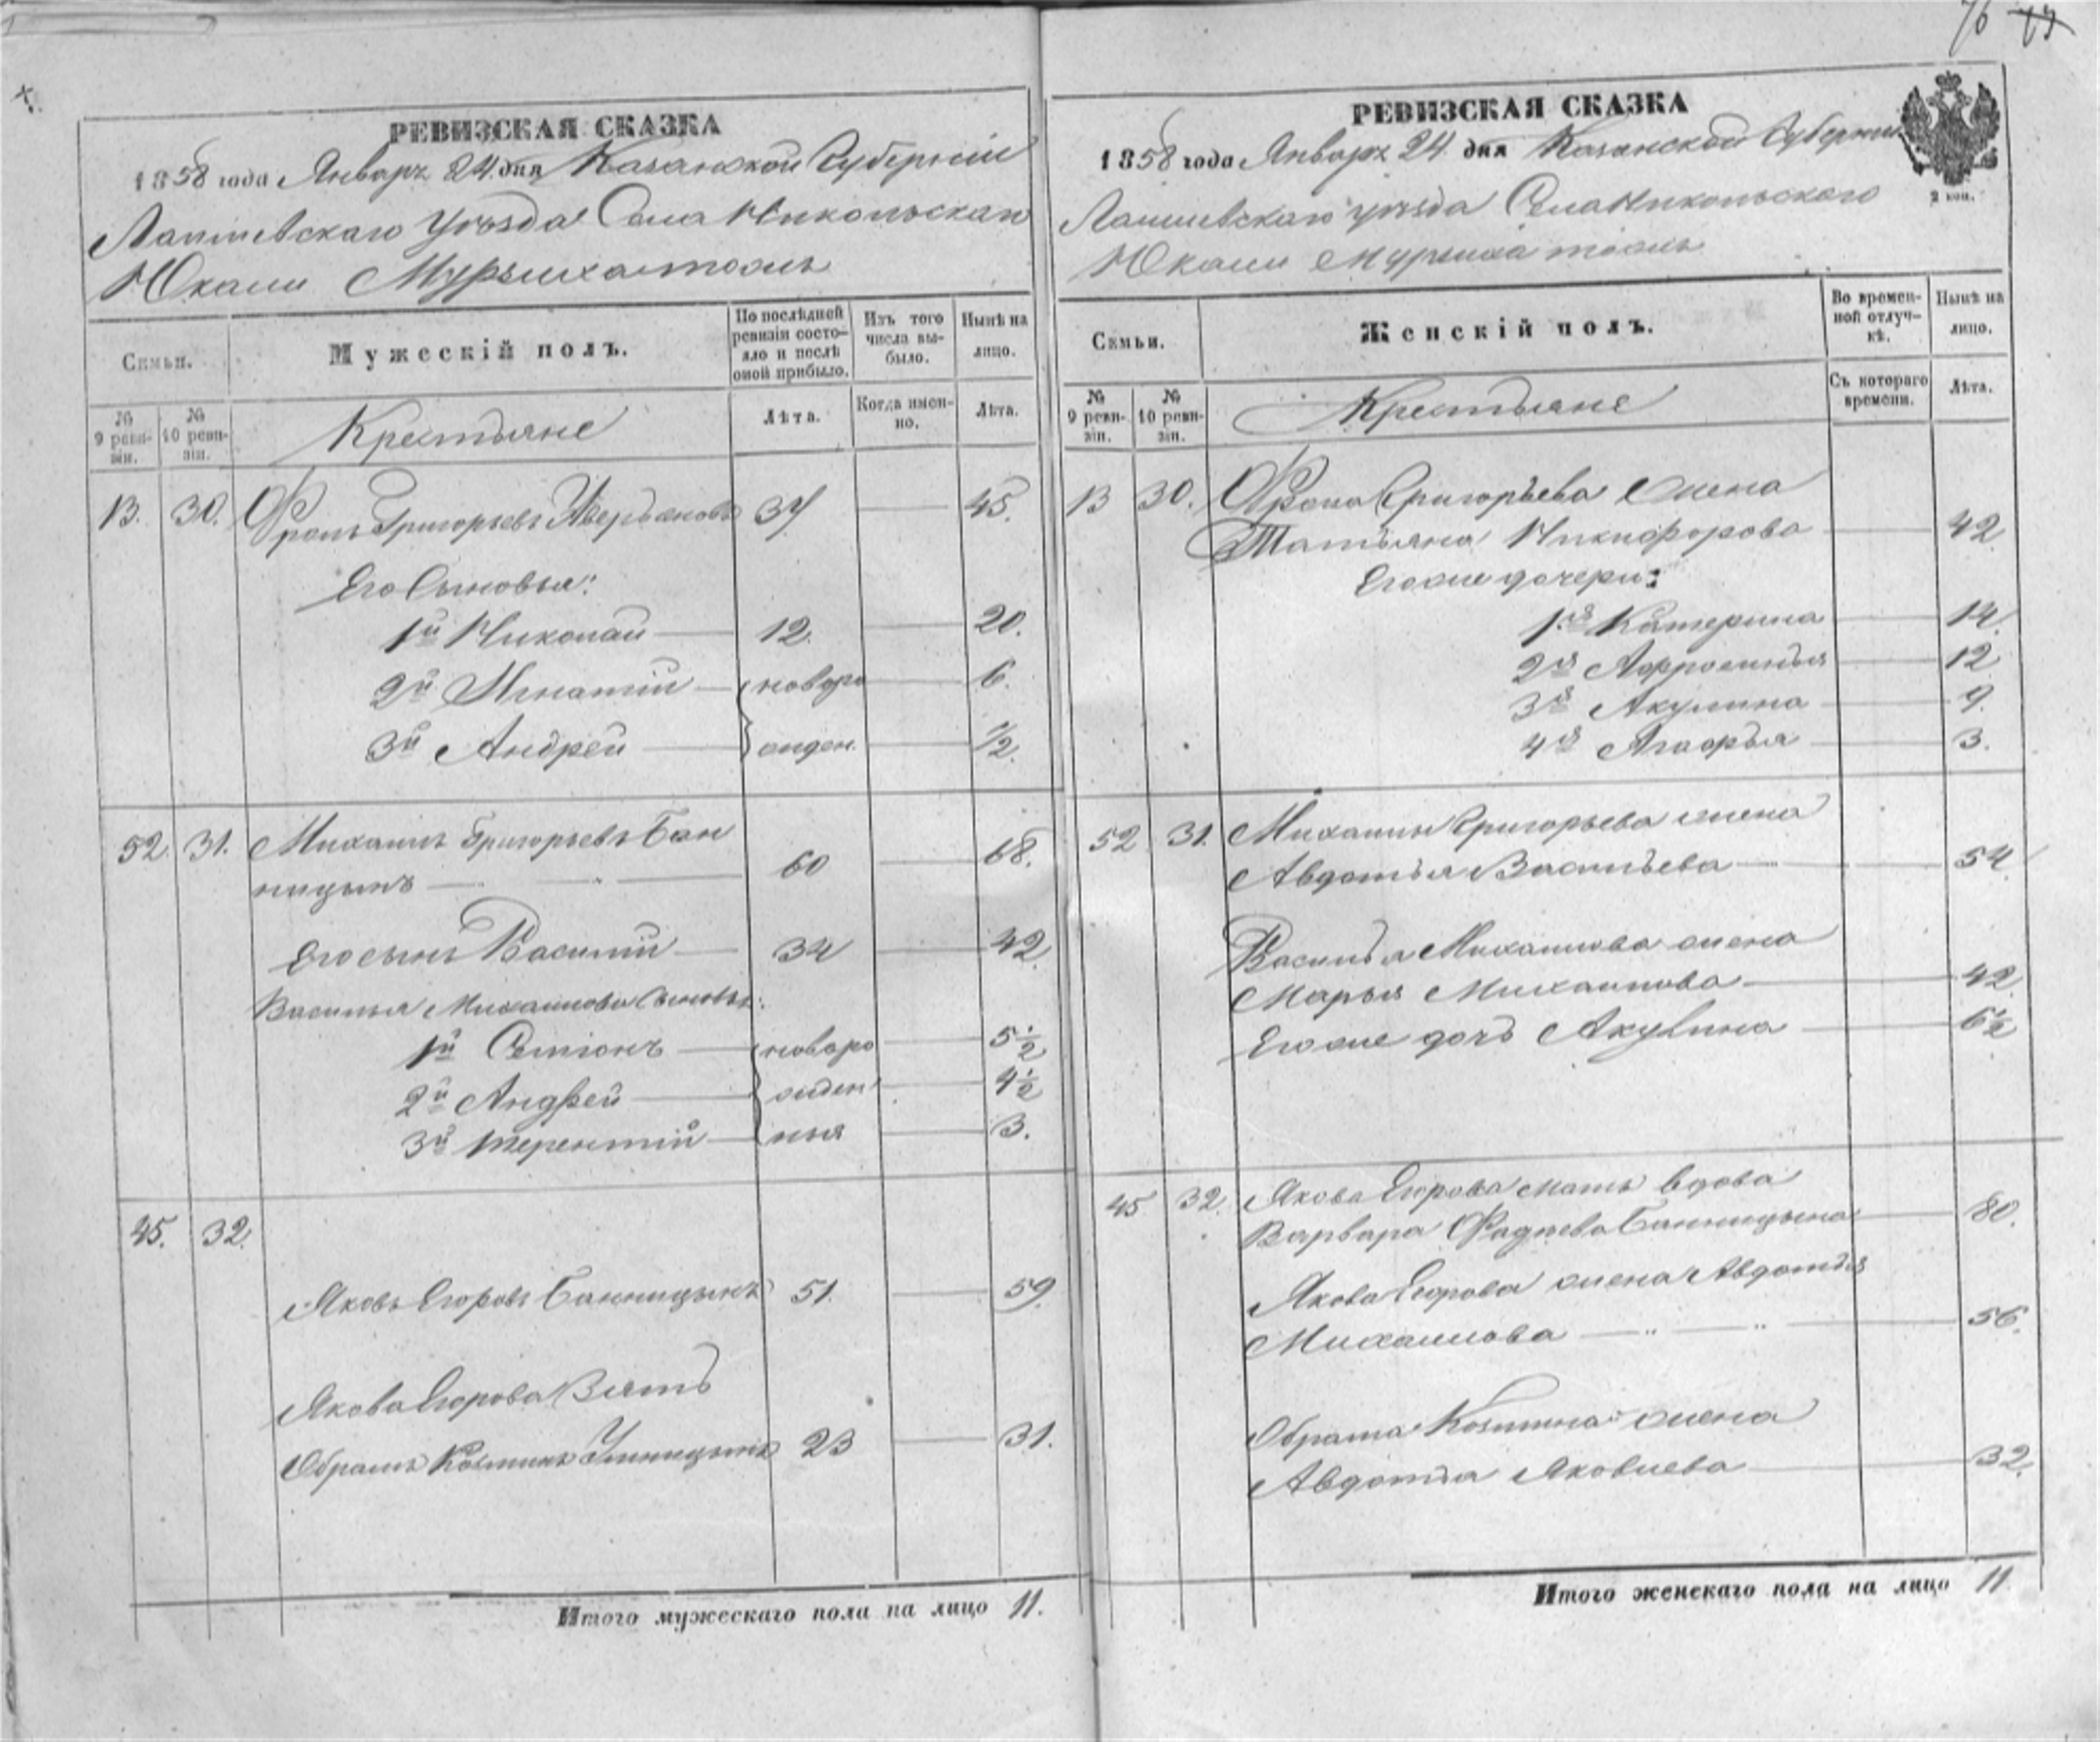 76 73
РЕВИЗСКАЯ СКАЗКА
1858 года Январѧ 24 дня Казанской Губерніи
Лаишевскаго Уѣзда Села Никольскаго
Юкачи тожъ
Семьи.
Мужескій полъ.
По послѣдней ревизіи состояло и послѣ оной прибыло.
Изъ того числа выбыло.
Нынѣ на лицо.
№ 9 ревизіи.
№ 10 ревизіи.
Крестьяне
Лѣта.
Когда именно.
Лѣта.
13. 30. Фролъ Григорьевъ Аверьяновъ 37 45.
Его Сыновья:
1й Николай 12. 20.
2й Игнатій новоро 6.
3й Андрей жден. 1/2.
52. 31. Михаилъ Григорьевъ Бан
ницынъ 60 68.
Его сынъ Василій 34 42.
Василья Михайлова Сыновья:
1й Семіонъ новоро 5 1/2
2й Андрей жден 4 1/2
3й Терентій ныя 3.
45. 32.
Яковъ Егоровъ Банницынъ 51. 59.
Якова Егорова Зять
Обрамъ Козминъ 23 31.
Итого мужескаго пола на лицо 11.
РЕВИЗСКАЯ СКАЗКА
1858 года Январѧ 24 дня Казанской Губерніи
2 коп.
Лаишевскаго уѣзда Села Никольскаго
Юкачи тожъ
Семьи.
Женскій полъ.
Во временной отлучкѣ.
Нынѣ на лицо.
№ 9 ревизіи.
№ 10 ревизіи.
Крестьяне
Съ котораго времени.
Лѣта.
13 30. Фрола Григорьева жена
Татьяна Никифорова 42
Его же дочери:
1я Катерина 14.
2я Афросинья 12
3я Акулина 9.
4я Агафья 3.
52 31. Михаилы Григорьева жена
Авдотья Васильева 54.
Василья Михайлова жена
Марья Михайлова 42
Его же дочь Акулина 6 1/2
45 32. Якова Егорова мать вдова
Варвара Фадѣева Банницына 80.
Якова Егорова жена Авдотья
Михайлова 56.
Обрама Козмина жена
Авдотья Яковлева 32.
Итого женскаго пола на лицо 11.